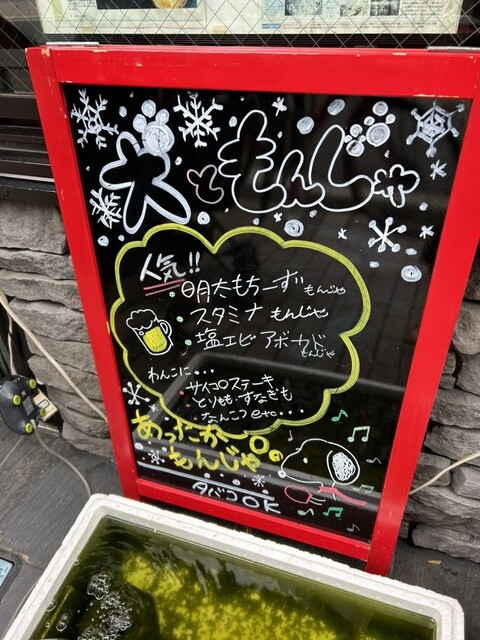 犬ともんじゃ
人気!!
・明太もちーず もんじゃ
・スタミナ もんじゃ
・塩エビ アボカド もんじゃ
わんこに・・・
・サイコロステーキ
とりもも・すなぎも
なんこつ etc・・・
あったか
もんじゃ
タバコOK